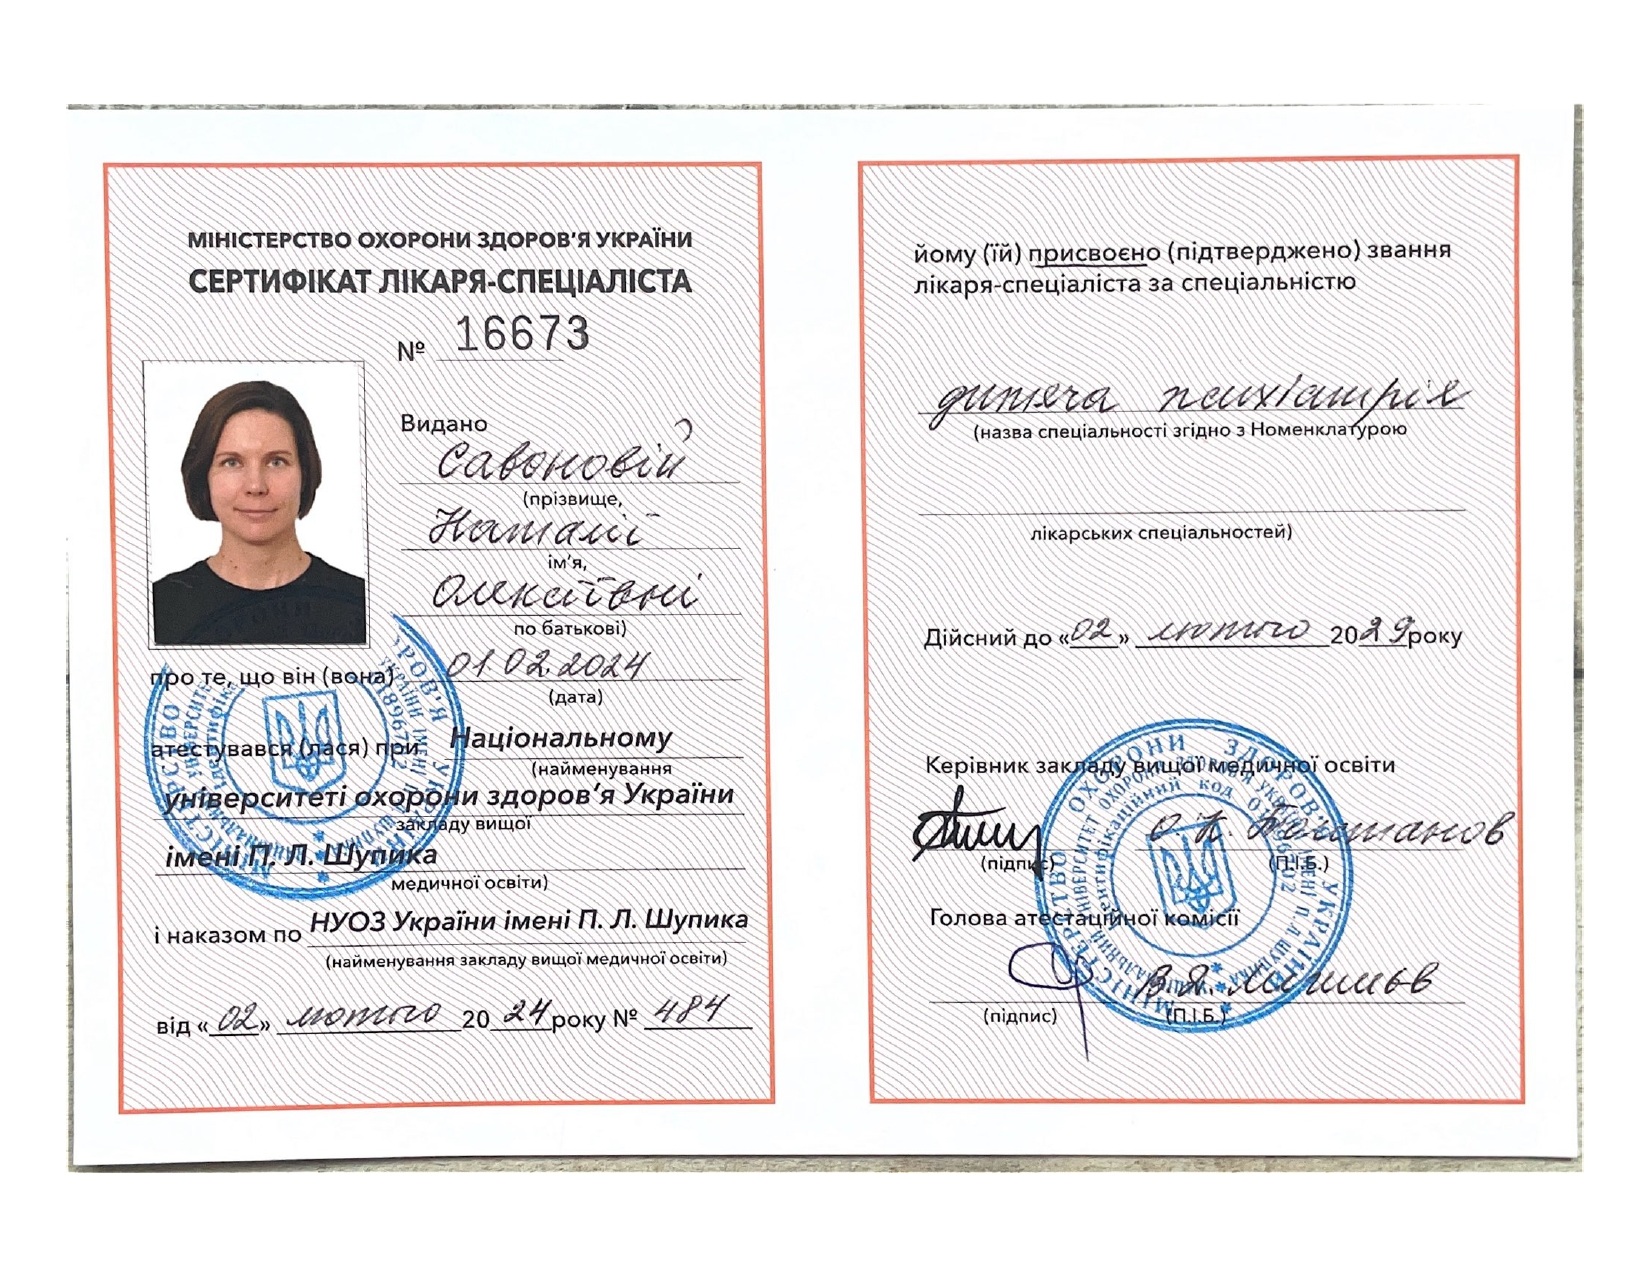 МІНІСТЕРСТВО ОХОРОНИ ЗДОРОВ'Я УКРАЇНИ
СЕРТИФІКАТ ЛІКАРЯ-СПЕЦІАЛІСТА
№ 16673
Видано
Савоновій
(прізвище,
Наталії
ім'я,
Олексіївні
по батькові)
про те, що він (вона) 01.02.2024
(дата)
атестувався (лася) при Національному
(найменування
університеті охорони здоров'я України
закладу вищої
імені П. Л. Шупика
медичної освіти)
і наказом по НУОЗ України імені П. Л. Шупика
(найменування закладу вищої медичної освіти)
від «02» лютого 2024 року № 484
йому (їй) присвоєно (підтверджено) звання
лікаря-спеціаліста за спеціальністю
дитяча психіатрія
(назва спеціальності згідно з Номенклатурою
лікарських спеціальностей)
Дійсний до «02» лютого 2029 року
Керівник закладу вищої медичної освіти
(підпис) (П.І.Б.)
Голова атестаційної комісії
(підпис) (П.І.Б.)
МІНІСТЕРСТВО ОХОРОНИ ЗДОРОВ'Я УКРАЇНИ